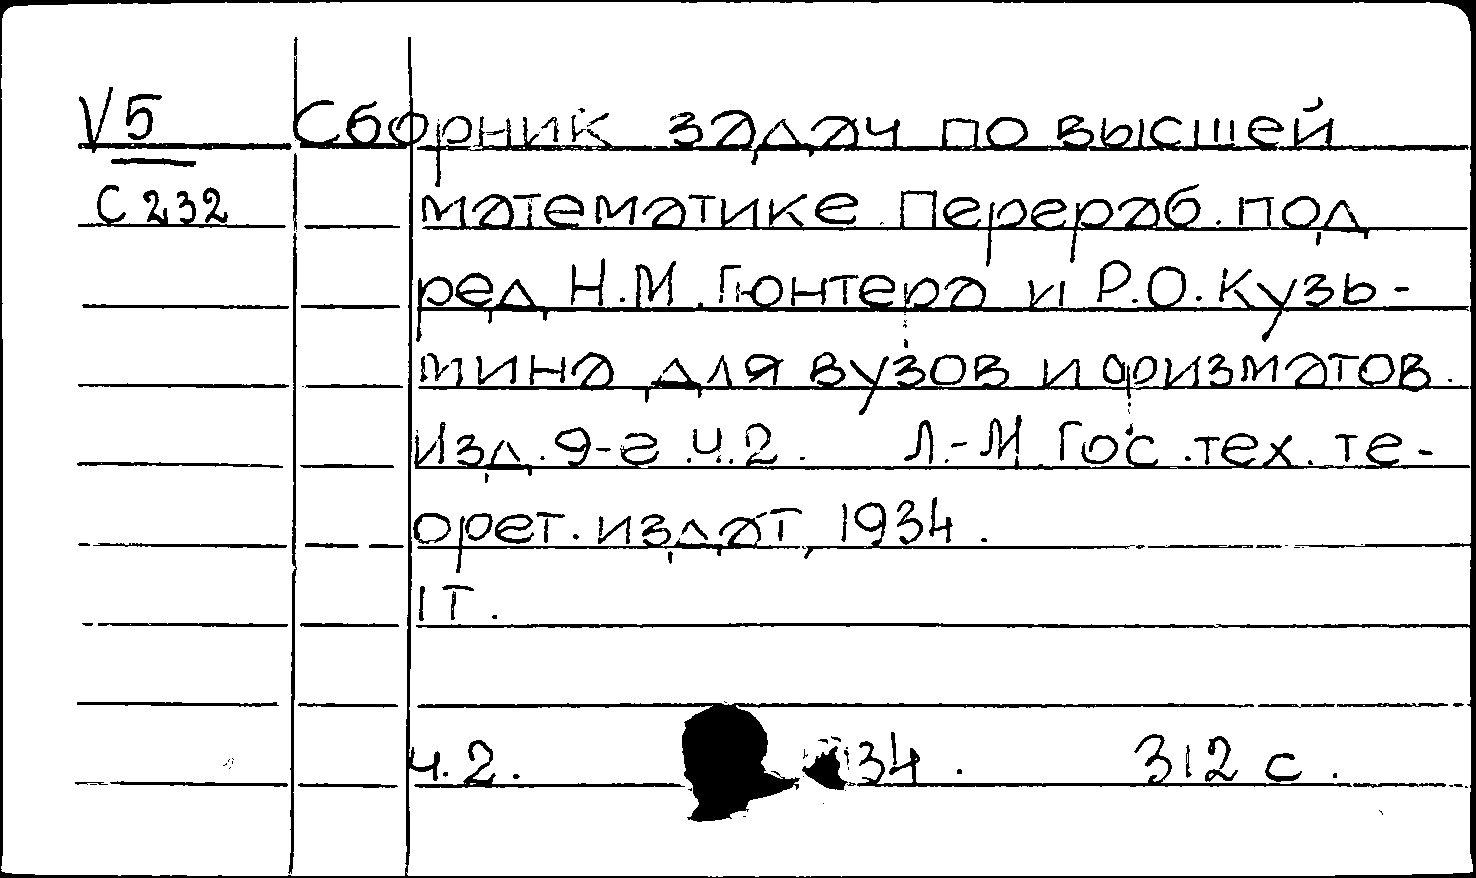 V5 Сборник задач по высшей
С 232 математике. Перераб. под
ред. Н.М. Гюнтера и Р.О. Кузь-
мина для вузов и физматов.
Изд. 9-е. Ч.2. Л.-М. Гос. тех. те-
орет. издат, 1934.
1 т.
ч.2. 312 с.